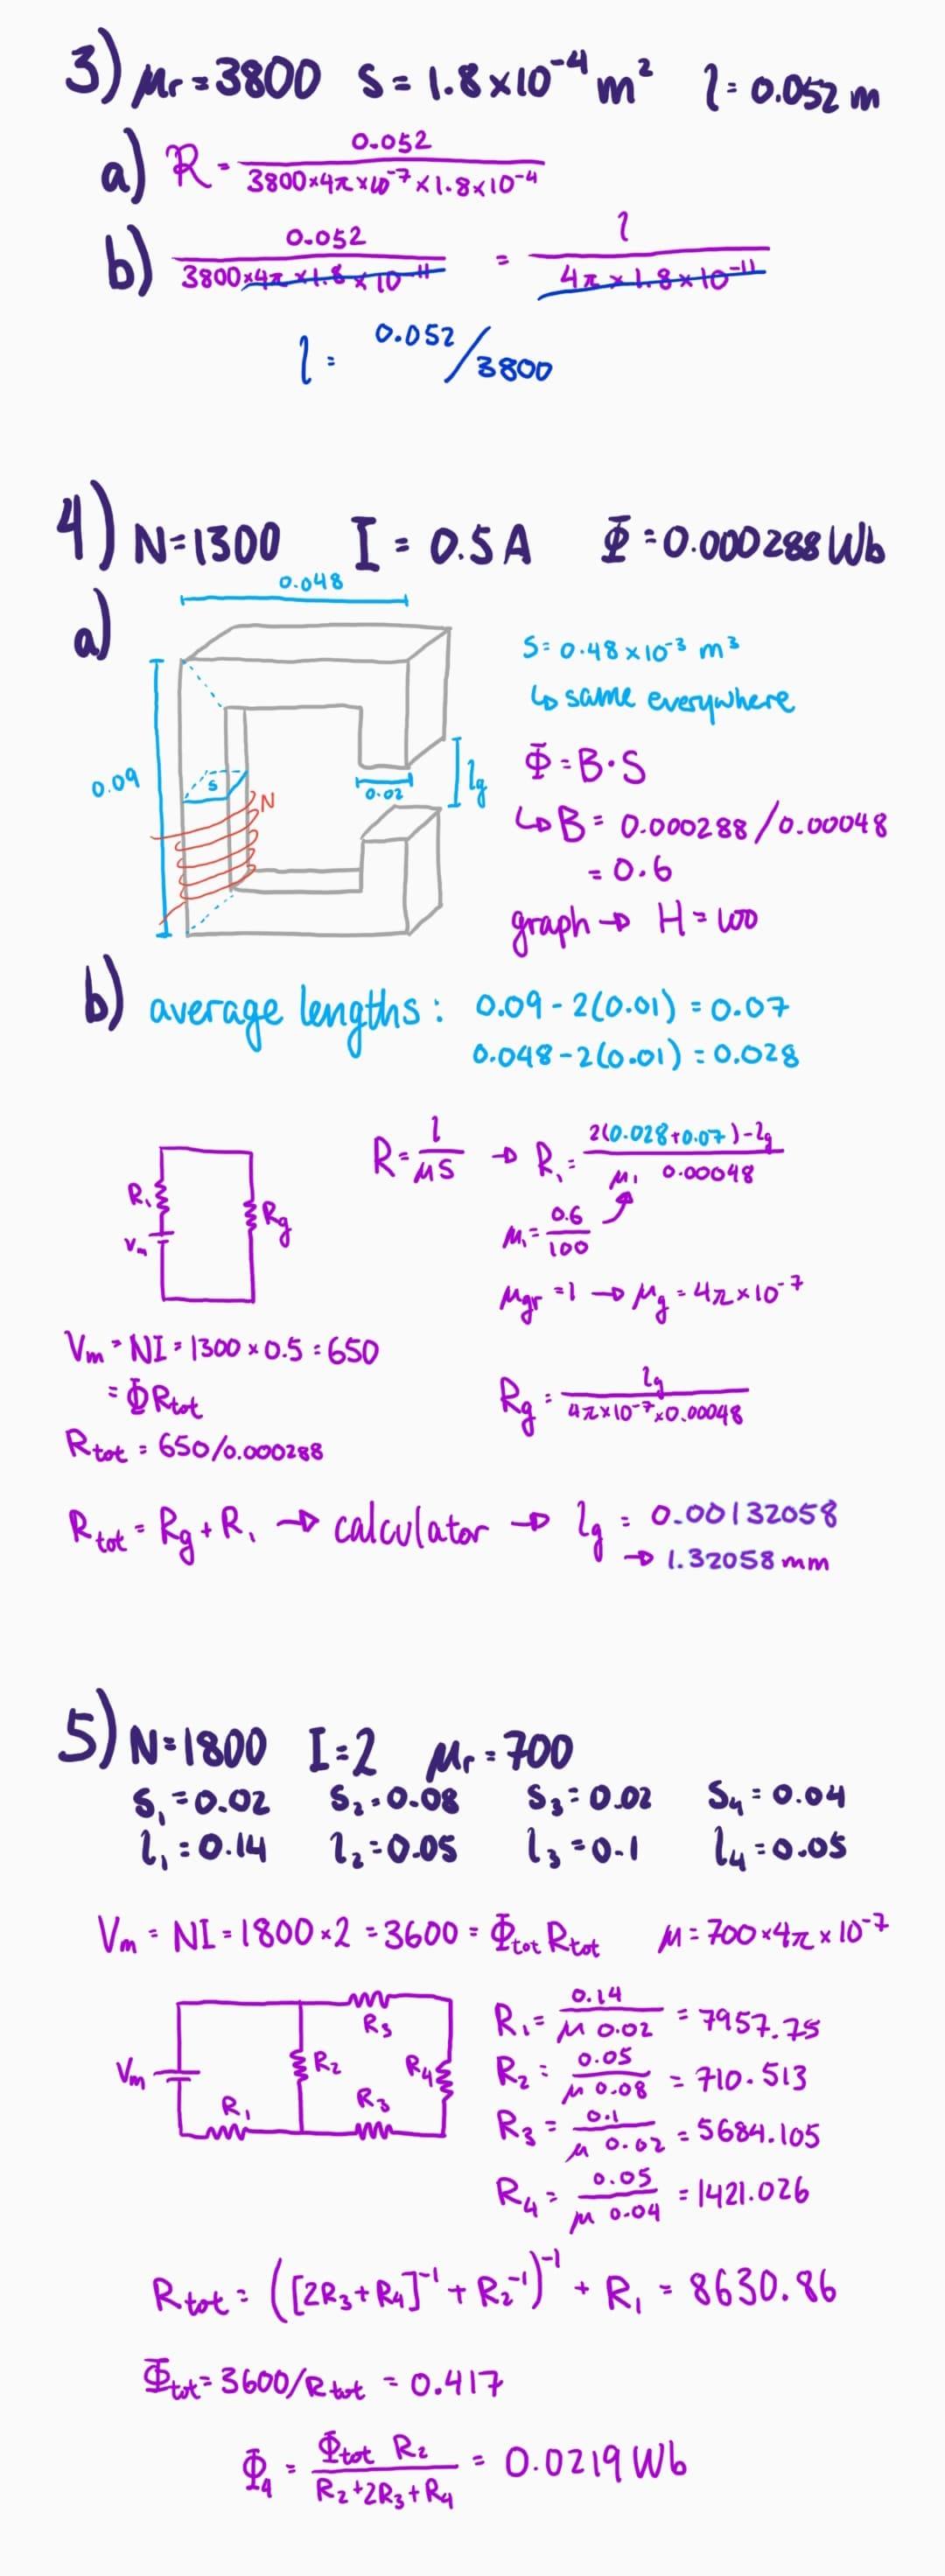 3) μr = 3800 S = 1.8×10⁻⁴ m² l = 0.052 m
a) R = 0.052 / 3800×4π×10⁻⁷×1.8×10⁻⁴
b) 0.052 / 3800×4π×1.8×10⁻¹¹ = l / 4π×1.8×10⁻¹¹
l = 0.052/3800
4) N=1300 I = 0.5A Φ = 0.000288Wb
a)
0.048
0.09
S
N
0.02
lg
S = 0.48×10⁻³ m³
↳ same everywhere
Φ = B·S
↳ B = 0.000288/0.00048
= 0.6
graph → H = 100
b) average lengths: 0.09 - 2(0.01) = 0.07
0.048 - 2(0.01) = 0.028
R₁
Vm
Rg
R = l / μS → R₁ = 2(0.028+0.07)-lg / μ₁ 0.00048
μ₁ = 0.6 / 100
μgr = 1 → μg = 4π×10⁻⁷
Vm = NI = 1300×0.5 = 650
= ΦRtot
Rg = lg / 4π×10⁻⁷×0.00048
Rtot = 650/0.000288
Rtot = Rg + R₁ → calculator → lg = 0.00132058
→ 1.32058 mm
5) N=1800 I=2 μr = 700
S₁ = 0.02 S₂ = 0.08 S₃ = 0.02 S₄ = 0.04
l₁ = 0.14 l₂ = 0.05 l₃ = 0.1 l₄ = 0.05
Vm = NI = 1800×2 = 3600 = Φtot Rtot μ = 700×4π×10⁻⁷
Vm
R₁
R₂
R₃
R₃
R₄
R₁ = 0.14 / μ 0.02 = 7957.75
R₂ = 0.05 / μ 0.08 = 710.513
R₃ = 0.1 / μ 0.02 = 5684.105
R₄ = 0.05 / μ 0.04 = 1421.026
Rtot = ([2R₃+R₄]⁻¹ + R₂⁻¹)⁻¹ + R₁ = 8630.86
Φtot = 3600/Rtot = 0.417
Φ₄ = Φtot R₂ / R₂+2R₃+R₄ = 0.0219 Wb